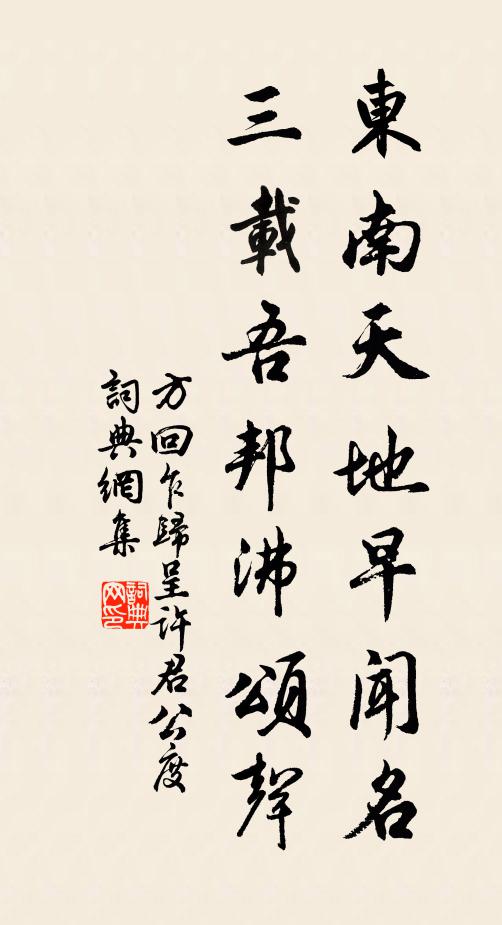 東南天地早聞名
三載吾邦沸頌聲
方回乍歸呈許君公度
詞典網集
詞典网印